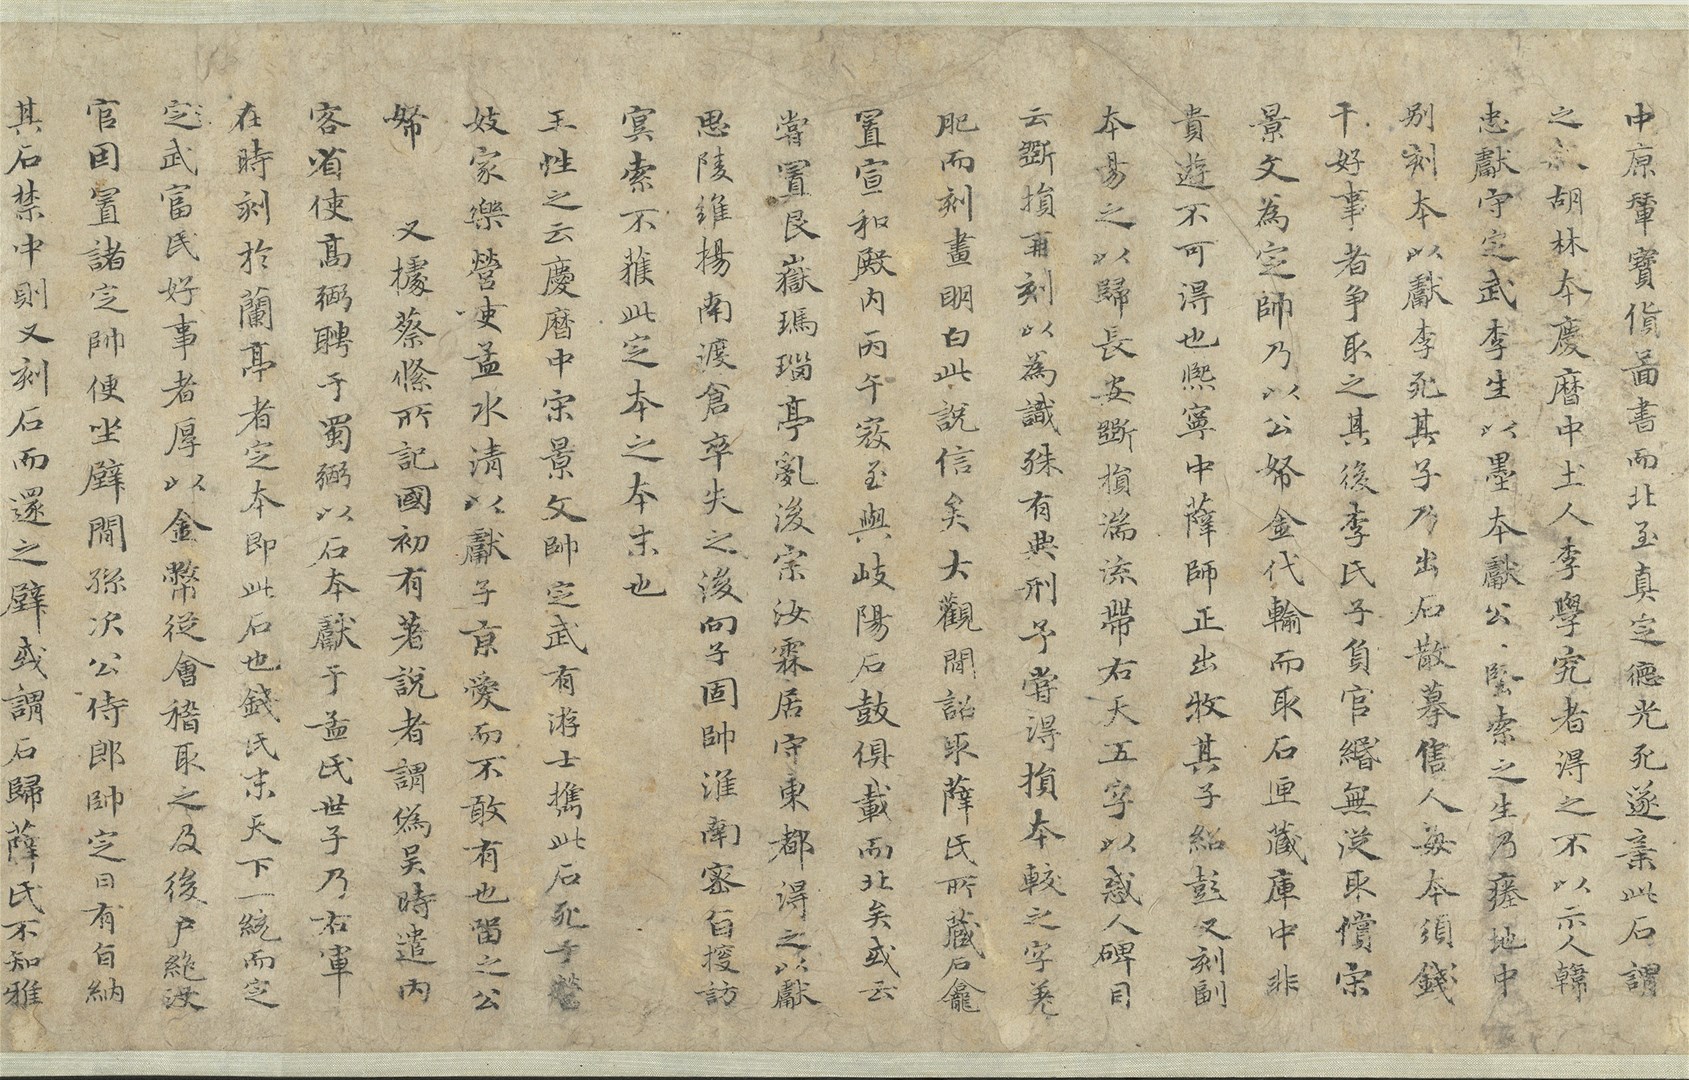 中原輦寶貨啚書而北至真定德光死遂棄此石謂
之胡林本慶曆中土人李學究者得之不以示人韓
忠獻守定武李生以墨本獻公堅索之生乃瘞地中
别刻本以獻李死其子乃出石散摹售人每本須錢
千好事者争取之其後李氏子負官緡無從取償宋
景文為定帥乃以公帑金代輸而取石匣藏庫中非
貴遊不可得也熈寧中薛師正出牧其子紹彭又刻副
本易之以歸長安斵損湍流帶右天五字以惑人碑目
云斵損再刻以為識殊有典刑予甞得損本較之字差
肥而刻畫明白此說信矣大觀間詔取薛氏所藏石龕
置宣和殿内丙午寇至與岐陽石鼓俱載而北矣或云
甞置艮嶽瑪瑙亭亂後宗汝霖居守東都得之以獻
思陵維揚南渡倉卒失之後向子固帥淮南密旨搜訪
㝠索不獲此定本之本末也
王性之云慶曆中宋景文帥定武有游士攜此石死于營
妓家樂營吏孟水清以獻子京愛而不敢有也留之公
帑 又據蔡絛所記國初有著說者謂偽吳時遣内
客省使髙弼聘于蜀弼以石本獻于孟氏世子乃右軍
在時刻於蘭亭者定本即此石也錢氏末天下一統而定
定武富民好事者厚以金幣從會稽取之及後户絶没
官因置諸定帥便坐壁間孫次公侍郎帥定日有旨納
其石禁中則又刻石而還之壁或謂石歸薛氏不知雅